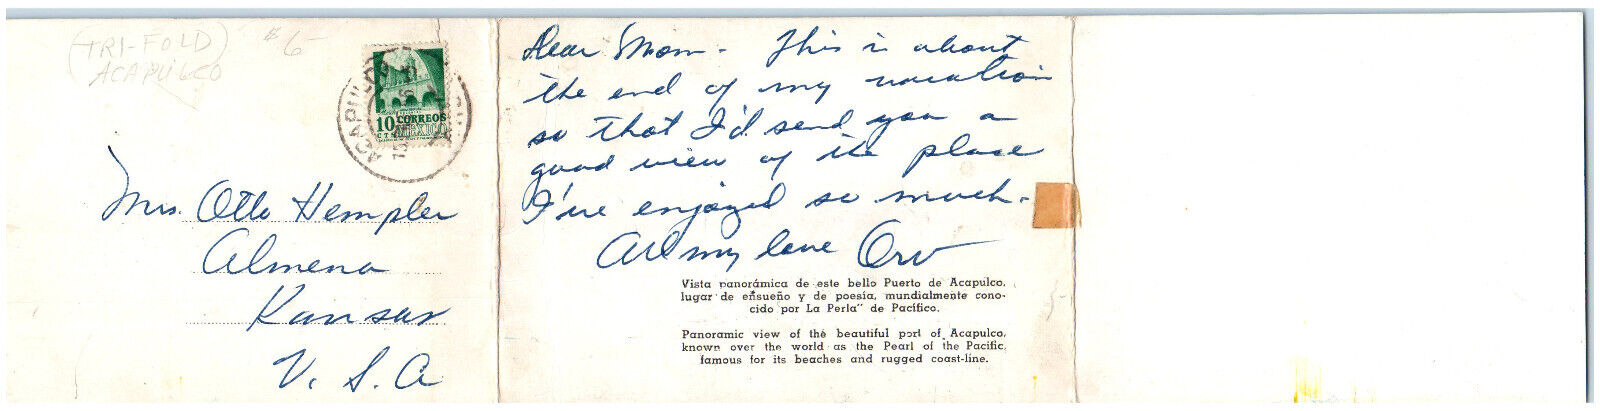 (TRI-FOLD)
ACAPULCO
$6-
ACAPULCO
10 CORREOS
CTS MEXICO
Mrs. Otto Hempler
Almena
Kansas
U. S. A
Dear Mom - This is about
the end of my vacation
so that I'd send you a
good view of the place
I've enjoyed so much -
All my love Orv
Vista panorámica de este bello Puerto de Acapulco,
lugar de ensueño y de poesía, mundialmente cono-
cido por La Perla" de Pacífico.
Panoramic view of the beautiful port of Acapulco,
known over the world as the Pearl of the Pacific,
famous for its beaches and rugged coast-line.